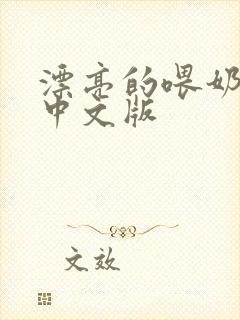 漂亮的喂奶
中文版
文效